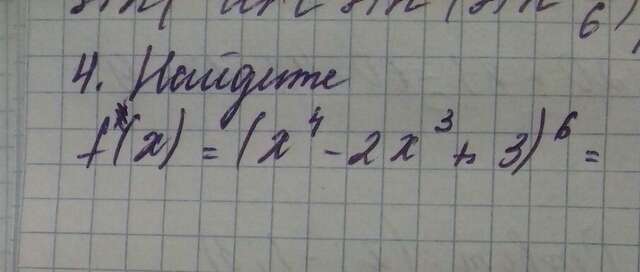 4. Найдите
f'(x) = (x⁴ - 2x³ + 3)⁶ =